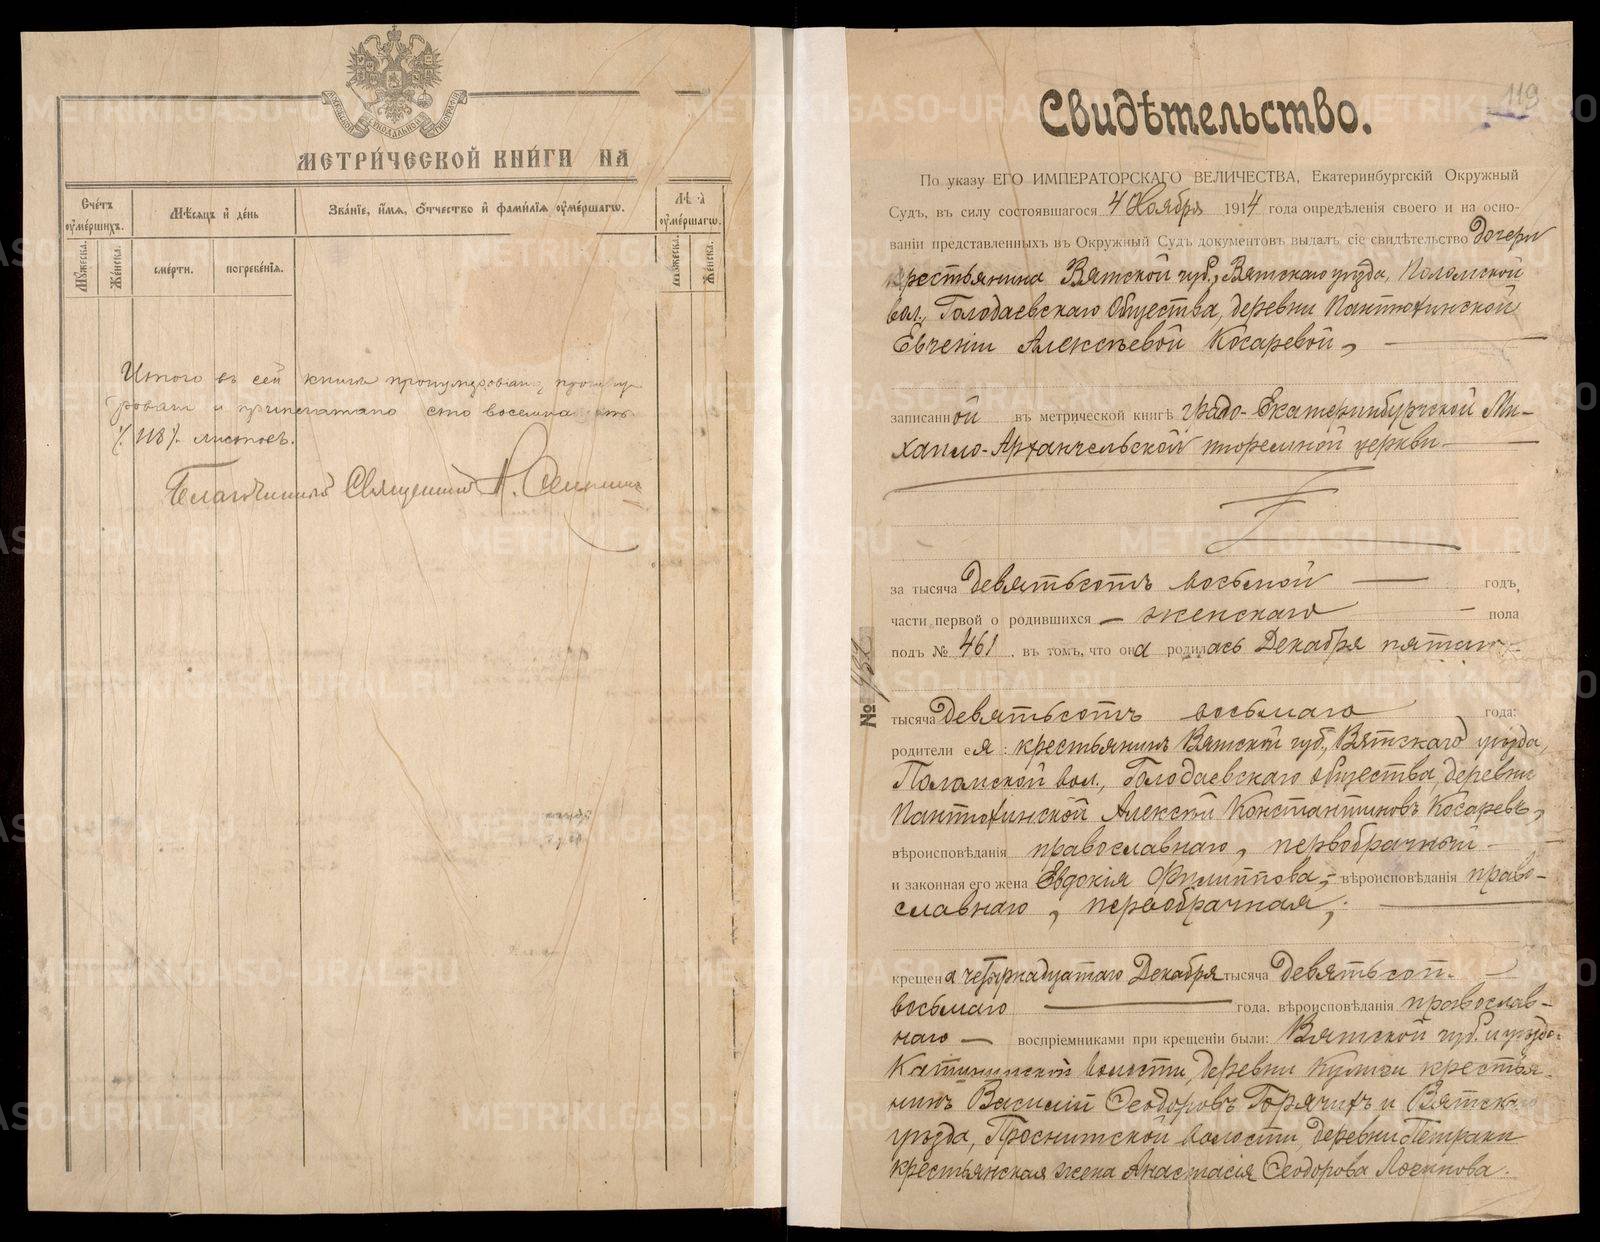 МЕТРИ́ЧЕСКОЙ КНИ́ГИ НА
Сче́тъ ѹме́ршихъ.
Мѣ́сяцъ и де́нь
Зва́ніе, и́мя, о́тчество и фами́лія ѹме́ршагѡ.
Лѣ́та ѹме́ршагѡ.
Му́жеска.
Же́нска.
сме́рти.
погребе́нія.
Му́жеска.
Же́нска.
Итого въ сей книге пронумеровано, прошну-
ровано и припечатано сто восемнадцать
/118/. листовъ.
Благочинный Священникъ А.
119
Свидѣтельство.
По указу ЕГО ИМПЕРАТОРСКАГО ВЕЛИЧЕСТВА, Екатеринбургскій Окружный
Судъ, въ силу состоявшагося 4 Ноября 1914 года опредѣленія своего и на осно-
ваніи представленныхъ въ Окружный Судъ документовъ выдалъ сіе свидѣтельство дочери
крестьянина Вятской губ., Вятскаго уѣзда, Поломской
вол., Голодаевскаго Общества, деревни Пантюхинской
Евгеніи Алексѣевой Косаревой,
записанной въ метрической книгѣ градо-Екатеринбургской Ми-
хаило-Архангельской тюремной церкви
за тысяча девятьсотъ восьмой годъ,
части первой о родившихся женскаго пола
подъ № 461. въ томъ, что она родилась Декабря пятаго
№
тысяча девятьсотъ восьмаго года:
родители ея: крестьянинъ Вятской губ., Вятскаго уѣзда,
Поломской вол., Голодаевскаго общества, деревни
Пантюхинской Алексѣй Константиновъ Косаревъ,
вѣроисповѣданія православнаго, первобрачный
и законная его жена Евдокія Филиппова, вѣроисповѣданія право-
славнаго, первобрачная;
крещена четырнадцатаго Декабря тысяча девятьсот.
восьмаго года. вѣроисповѣданія православ-
наго воспріемниками при крещеніи были: Вятской губ. и уѣзда.
волости, деревни Кулиги крестья-
нинъ Василій Ѳеодоровъ Горячихъ и Вятскаго
уѣзда, Проснитской волости, деревни Петраки
крестьянская жена Анастасія Ѳеодорова Логинова.